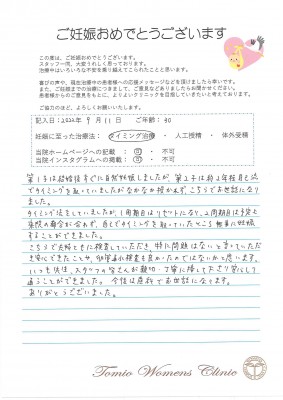 ご妊娠おめでとうございます
この度は、ご妊娠おめでとうございます。
スタッフ一同、大変うれしく思っております。
治療中はいろいろな不安を乗り越えてこられたことと思います。
喜びの声や、現在治療中の患者様への応援メッセージなどを頂けましたら幸いです。
また、ご妊娠までの治療につきまして、ご意見などありましたらお聞かせください。
患者様からのご意見をもとに、よりよいクリニックを目指していきたいと考えております。
ご協力のほど、よろしくお願いいたします。
記入日:2022年 9月11日 ご年齢:40
妊娠に至った治療法: タイミング治療 ・ 人工授精 ・ 体外受精
当院ホームページへの記載 : 可 ・ 不可
当院インスタグラムへの掲載 : 可 ・ 不可
第1子は結婚後すぐに自然妊娠しましたが、第2子は約2年程自己流
でタイミングを取っていましたがなかなか授かれず、こちらでお世話になり
ました。
タイミング法をしていましたが、1周期目はリセットになり、2周期目は予定と
病院の都合が合わず、自己でタイミングを取っていたところ無事に妊娠
することができました。
こちらで夫婦ともに検査していただき、特に問題はないと言っていただ
き安心できたことや、卵管通水検査も良かったのではないかと思います。
いつも先生、スタッフの皆さんが親切、丁寧に接して下さり安心して
通うことができました。今後は産科でお世話になります。
ありがとうございました。
Tomio Womens Clinic